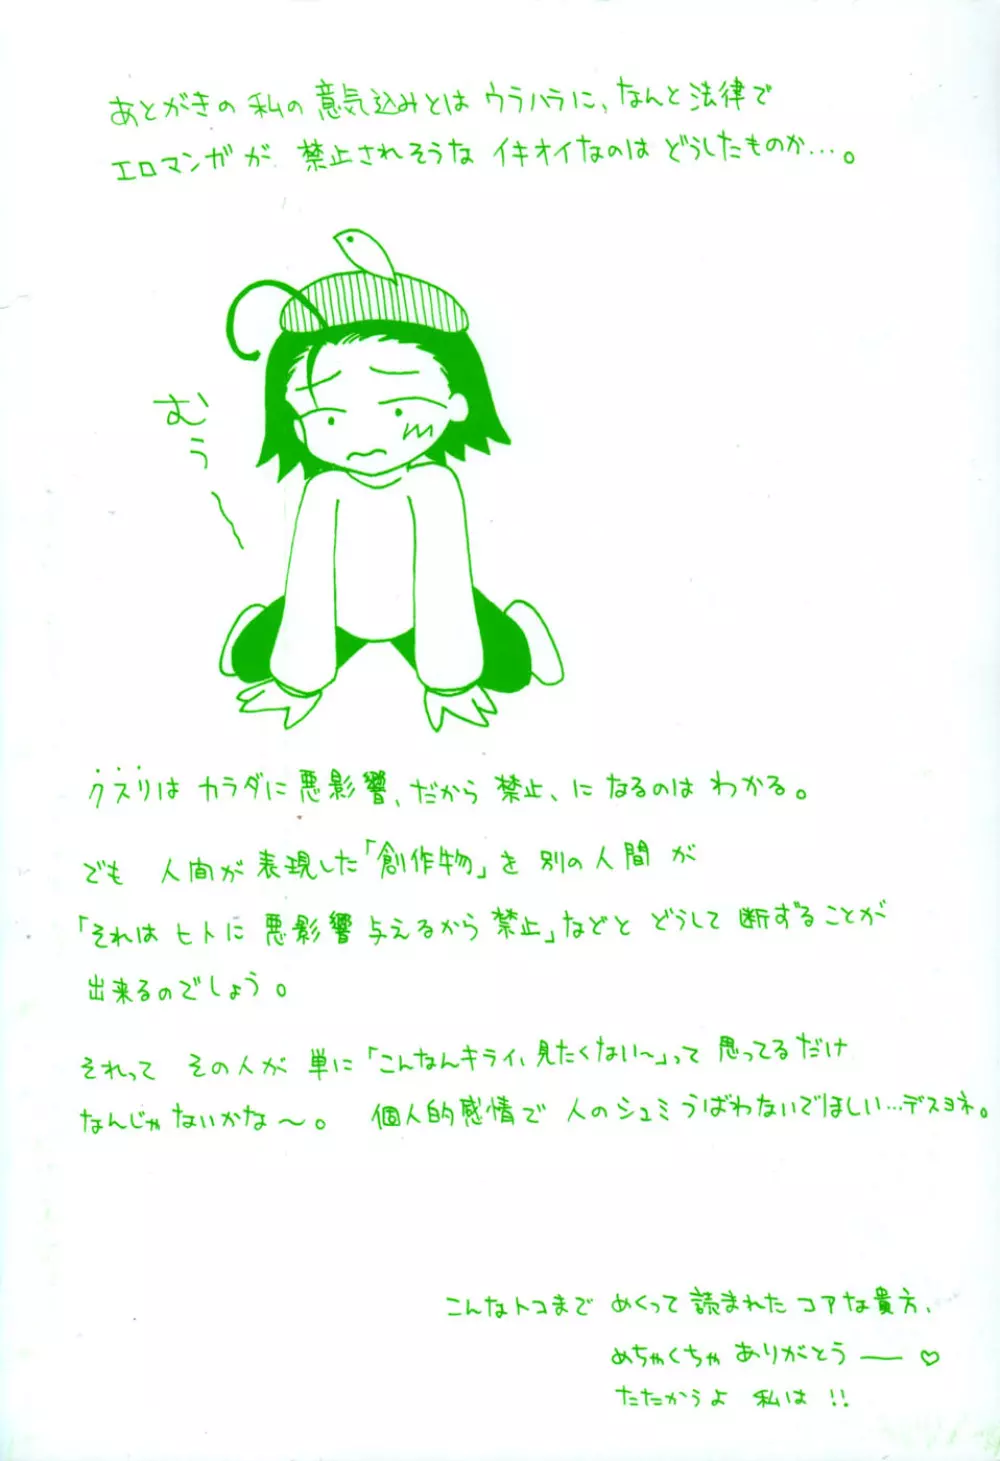 あとがきの私の意気込みとはウラハラに、なんと法律で
エロマンガが、禁止されそうなイキオイなのはどうしたものか…。
むぅ〜
クスリはカラダに悪影響、だから禁止、になるのはわかる。
でも人間が表現した「創作物」を別の人間が
「それはヒトに悪影響与えるから禁止」などとどうして断ずることが
出来るのでしょう。
それってその人が単に「こんなんキライ、見たくない〜」って思ってるだけ
なんじゃないかな〜。個人的感情で人のシュミうばわないでほしい…デスヨネ。
こんなトコまでめくって読まれたコアな貴方、
めちゃくちゃありがとうー♡
たたかうよ私は!!